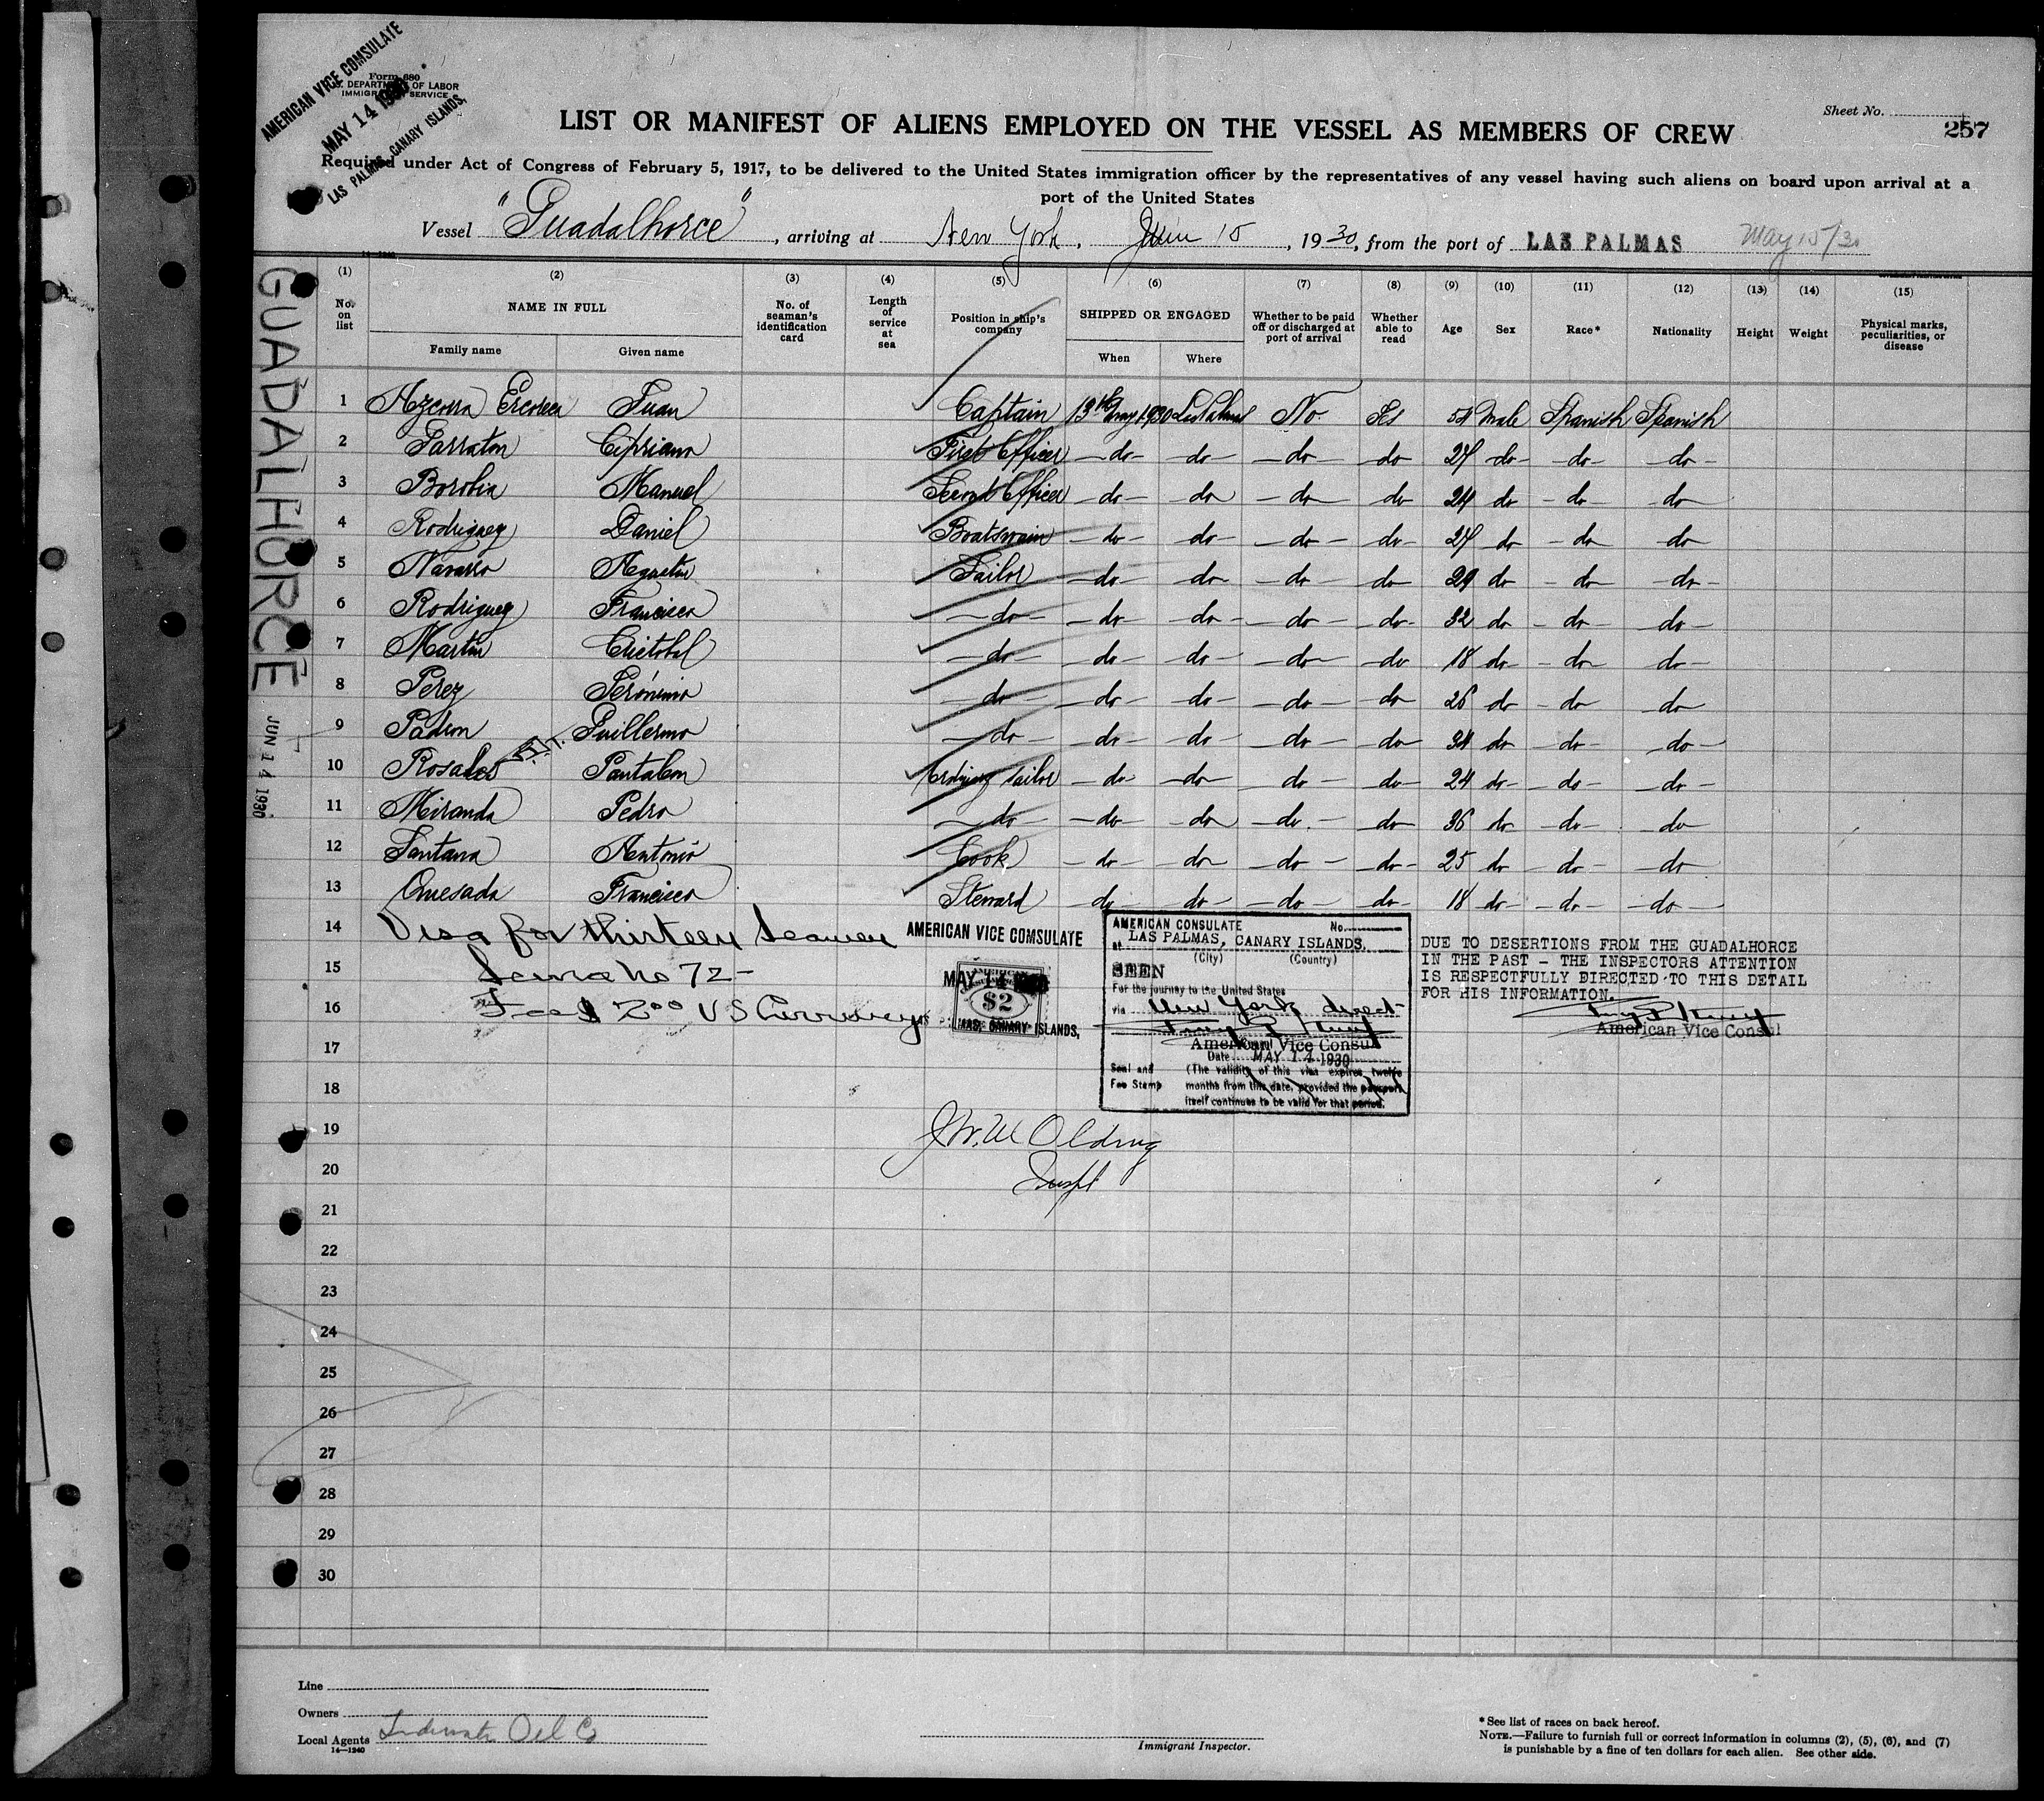 AMERICAN VICE COMSULATE
MAY 14 1930
LAS PALMAS, CANARY ISLANDS,
Form 680
U.S. DEPARTMENT OF LABOR
IMMIGRATION SERVICE
Sheet No.
257
LIST OR MANIFEST OF ALIENS EMPLOYED ON THE VESSEL AS MEMBERS OF CREW
Required under Act of Congress of February 5, 1917, to be delivered to the United States immigration officer by the representatives of any vessel having such aliens on board upon arrival at a
port of the United States
Vessel "Guadalhorce", arriving at New York, June 15, 1930, from the port of LAS PALMAS May 15/30
GUADALHORCE
JUN 14 1930
(1) (2) (3) (4) (5) (6) (7) (8) (9) (10) (11) (12) (13) (14) (15)
No. on list
NAME IN FULL
Family name
Given name
No. of seaman's identification card
Length of service at sea
Position in ship's company
SHIPPED OR ENGAGED
When
Where
Whether to be paid off or discharged at port of arrival
Whether able to read
Age
Sex
Race*
Nationality
Height
Weight
Physical marks, peculiarities, or disease
1 Juan Captain 13th May 1930 Las Palmas No. Yes male Spanish Spanish
2 Garraton Cipriano First Officer —do— —do— —do— —do— 27 —do— —do— —do—
3 Borobia Manuel Second Officer —do— —do— —do— do 24 do —do— —do—
4 Rodriguez Daniel Boatswain —do— do— —do— do— 27 do —do— —do—
5 Navarro Agustin Sailor —do— do— —do— do— 29 do —do— —do—
6 Rodriguez Francisco —do— —do— —do— —do— —do— 32 do —do— —do—
7 Martin Cristobal —do— —do— —do— —do— —do— 18 do —do— do—
8 Perez Jeronimo —do— —do— —do— —do— do 26 do —do— do
9 Padron Guillermo —do— —do— do— —do— —do— 34 do —do— —do—
10 Rosales Pantaleon Ordinary Sailor —do —do— do— —do— 24 do— —do— —do—
11 Miranda Pedro —do— —do— —do— —do.— —do— 36 do —do— —do—
12 Santana Antonio Cook —do— —do— —do— —do— 25 do —do— —do
13 Quesada Francisco Steward —do —do— —do— —do— 18 do— —do— —do—
14
15
16
17
18
19
20
21
22
23
24
25
26
27
28
29
30
Visa for thirteen Seamen
Service No 72 —
Fee $ 2.00 US Currency
AMERICAN VICE COMSULATE
MAY 14
$2
LAS PALMAS, CANARY ISLANDS,
AMERICAN CONSULATE No.
at LAS PALMAS, CANARY ISLANDS.
(City) (Country)
SEEN
For the journey to the United States
via New York direct
American Vice Consul
Date MAY 14 1930
Seal and Fee Stamp
(The validity of this visa expires twelve
months from this date, provided the passport
itself continues to be valid for that period.
DUE TO DESERTIONS FROM THE GUADALHORCE
IN THE PAST - THE INSPECTORS ATTENTION
IS RESPECTFULLY DIRECTED TO THIS DETAIL
FOR HIS INFORMATION.
American Vice Consul
Olding
Inspt
Line
Owners
Local Agents Tidewater Oil Co
14—1240
Immigrant Inspector.
* See list of races on back hereof.
NOTE.—Failure to furnish full or correct information in columns (2), (5), (6), and (7)
is punishable by a fine of ten dollars for each alien. See other side.